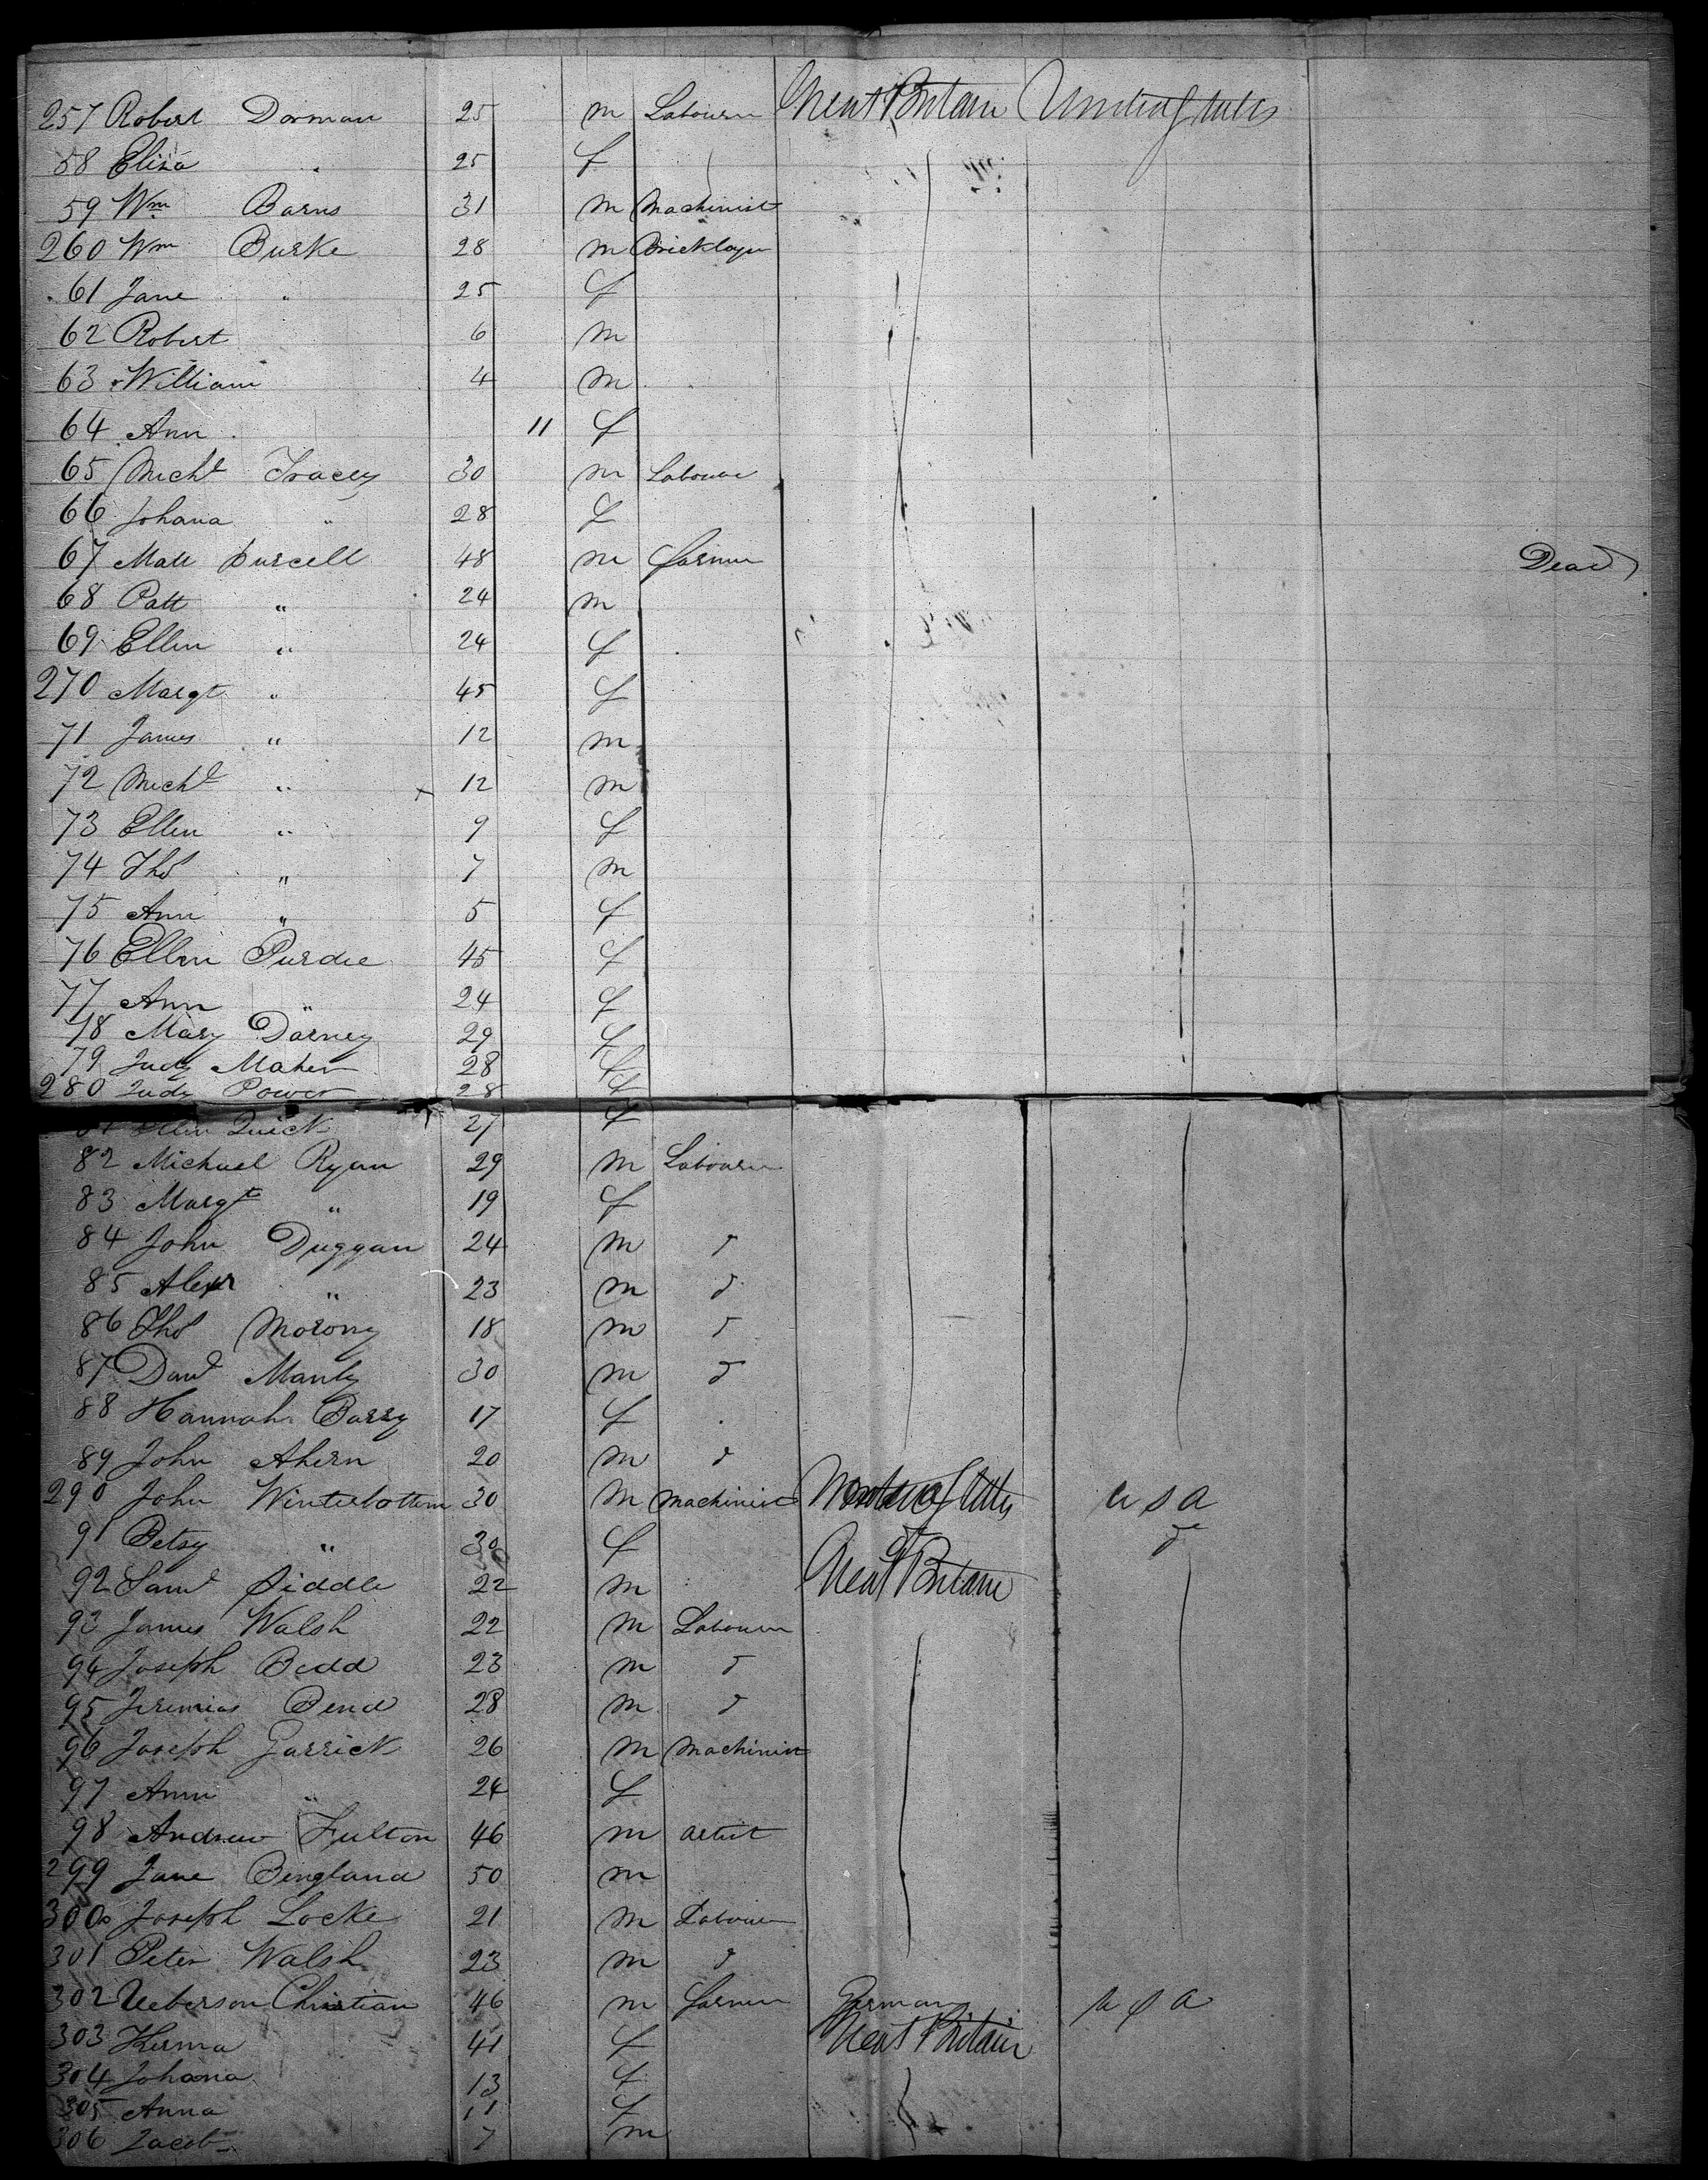 257 Robert Dorman 25 m Labourer Great Britain United States
58 Eliza " 25 f
59 Wm Barns 31 m Machinist
260 Wm Burke 28 m Bricklayer
61 Jane " 25 f
62 Robert 6 m
63 William 4 m
64 Ann 11 f
65 Michl Tracey 30 m Labourer
66 Johana " 28 f
67 Matt Purcell 48 m Farmer Dead
68 Patt " 24 m
69 Ellen " 24 f
270 Margt " 45 f
71 James " 12 m
72 Michl " 12 m
73 Ellen " 9 f
74 Thos " 7 m
75 Ann " 5 f
76 Ellen Purdie 45 f
77 Ann " 24 f
78 Mary Darney 29 f
79 Judy Maher 28 f
280 Judy Power 28 f
81 Ellen Quick 27 f
82 Michael Ryan 29 m Labourer
83 Margt " 19 f
84 John Duggan 24 m do
85 Alexr " 23 m do
86 Thos Morony 18 m do
87 Danl Manly 30 m do
88 Hannah Barry 17 f
89 John Ahern 20 m do
290 John Winterbottom 30 m Machinist United States U S A
91 Betsy " 30 f do do
92 Saml Siddle 22 m Great Britain
93 James Walsh 22 m Labourer
94 Joseph Bedd 23 m do
95 Jeremias Bend 28 m do
96 Joseph Garrick 26 m Machinist
97 Ann " 24 f
98 Andrew Fulton 46 m artist
299 Jane Bengland 50 m
300 Joseph Locke 21 m Labourer
301 Peter Walsh 23 m do
302 Ueberson Christian 46 m Farmer German U S A
303 Herma 41 f Great Britain
304 Johana 13 f
305 Anna 11 f
306 Jacob 7 m